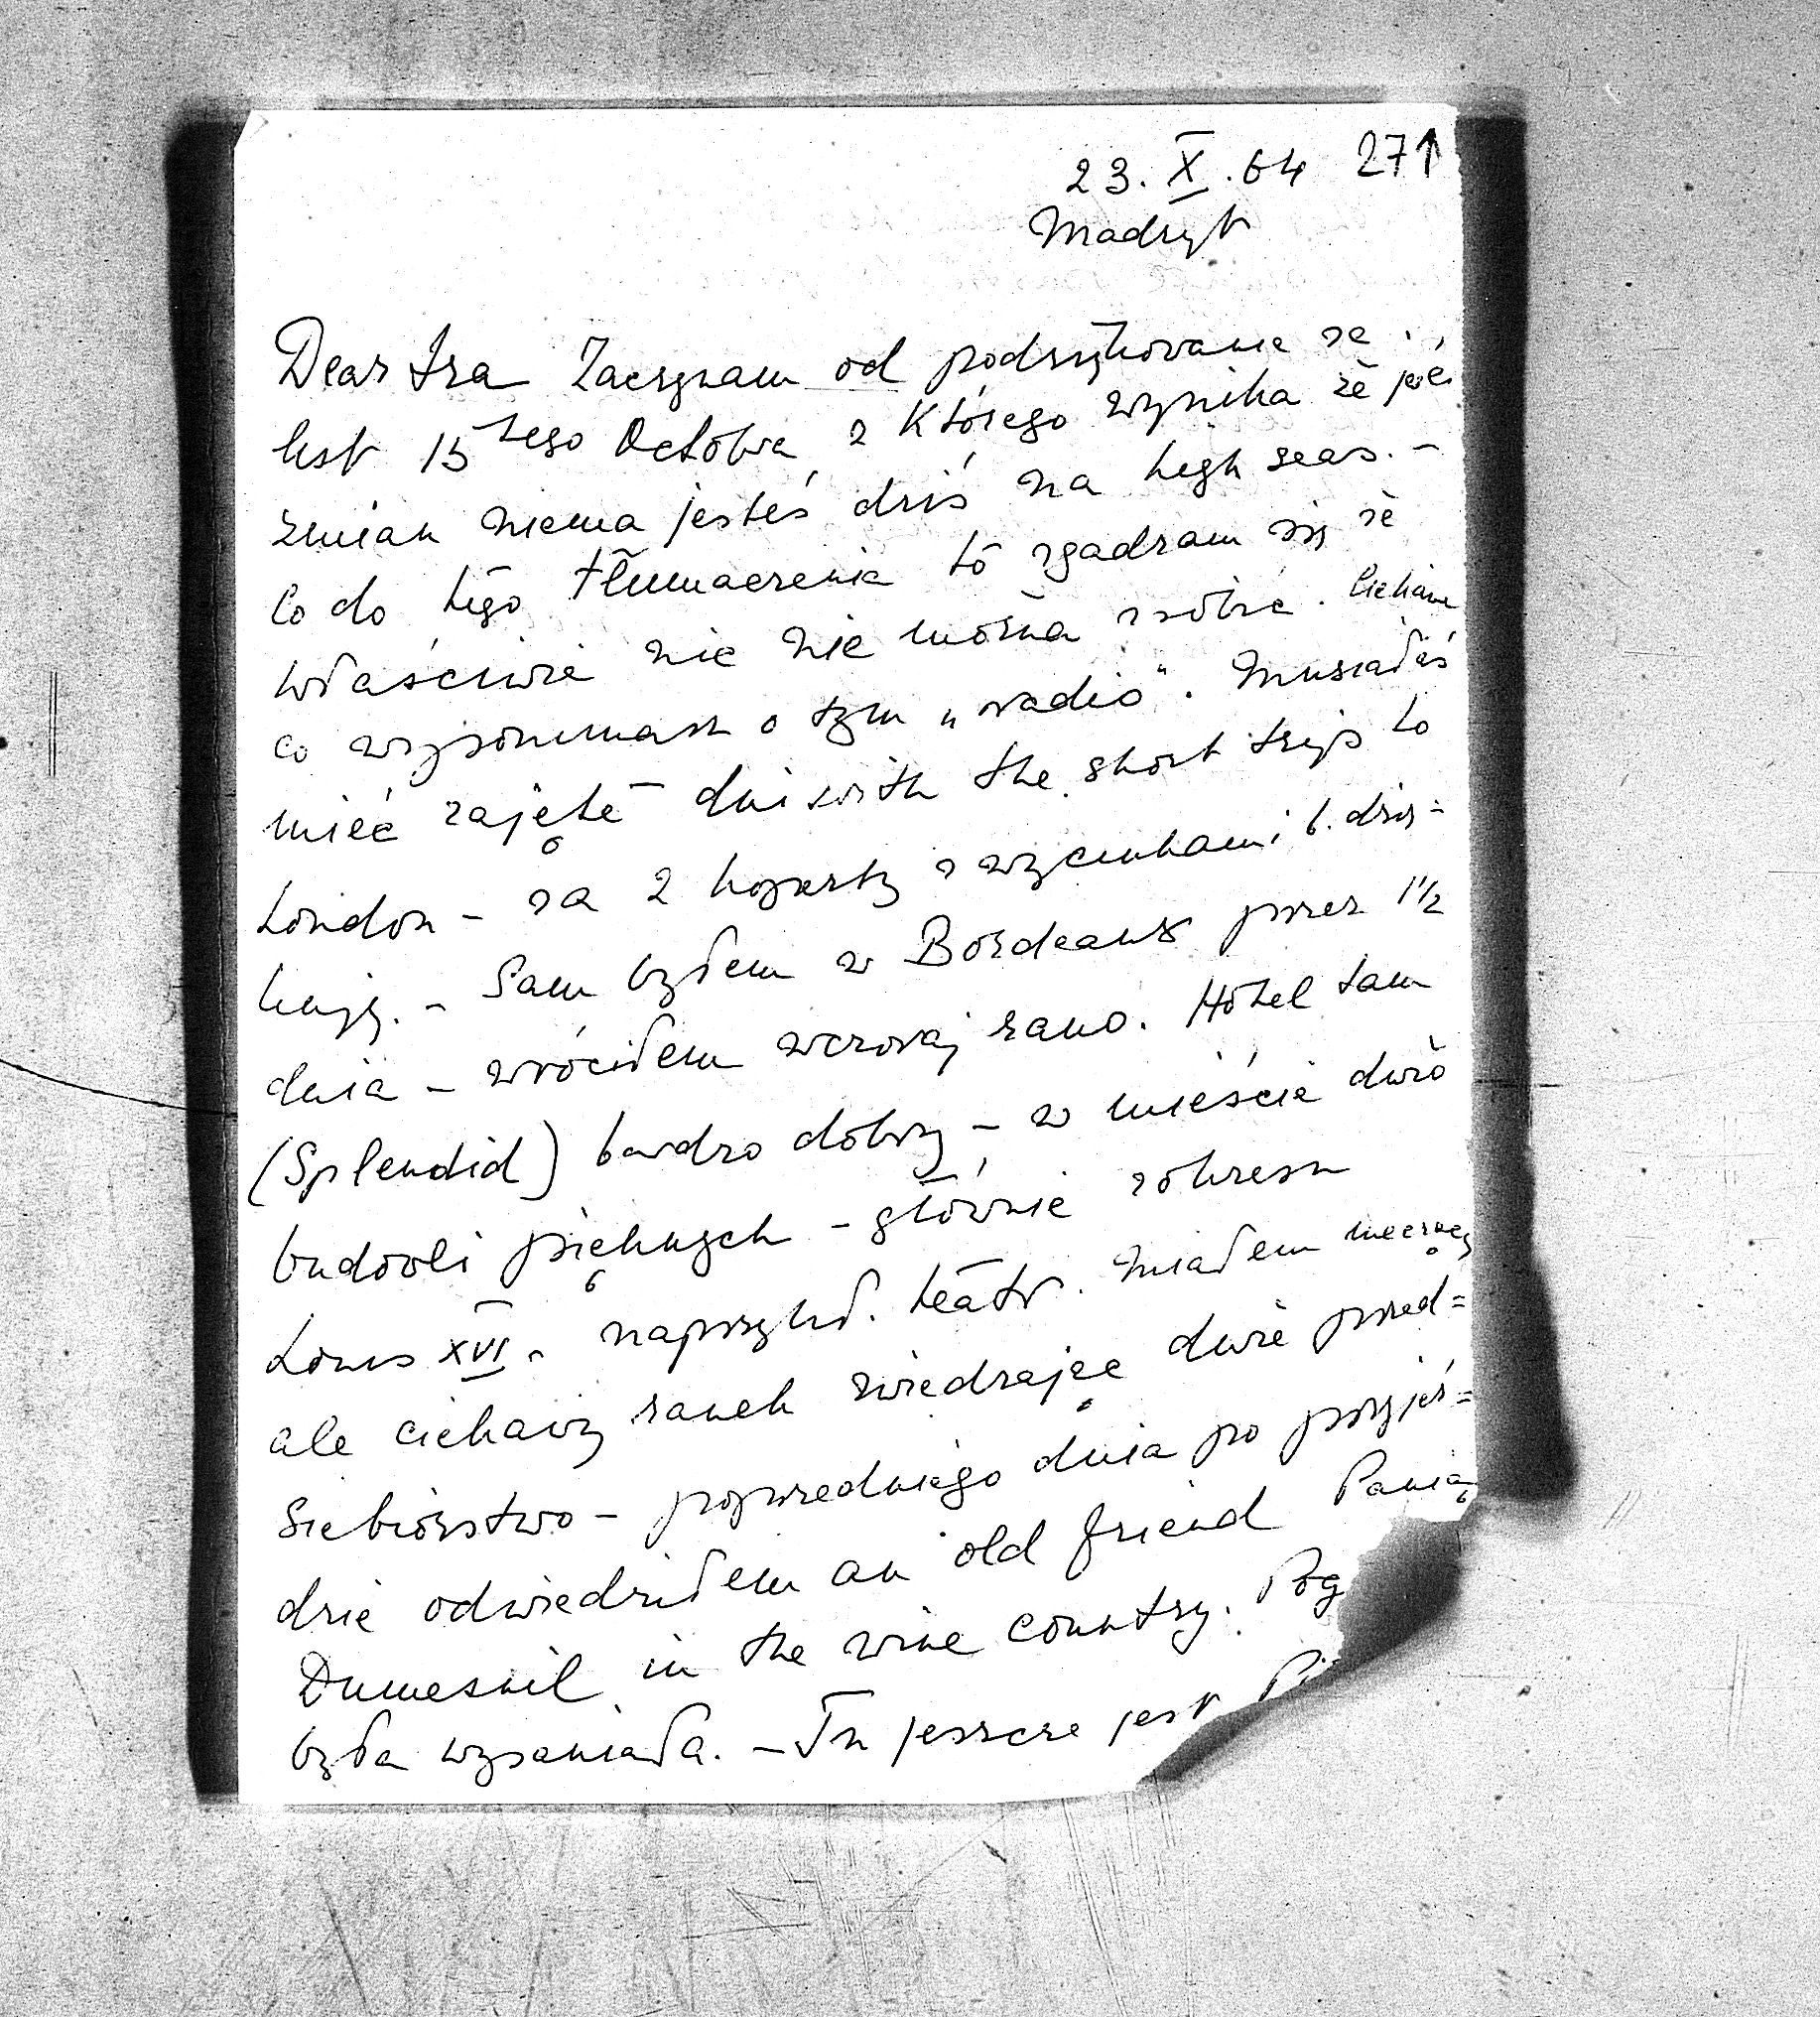 23.X.64 27↑
Madryt
Dear Ira Zaczynam od podziękowania za
list 15tego Octobra z którego wynika że jeśli
zmian niema jesteś dziś na high seas. -
Co do tego tłumaczenia to zgadzam się że
właściwie nic nie można zrobić. Ciekawe
co wspominasz o tym „radio". Musiałaś
mieć zajęte dni with the short trip to
London - za 2 koperty z wycinkami b. dzię=
kuję. - Sam byłem w Bordeaux przez 1½
dnia - wróciłem wczoraj rano. Hotel tam
(Splendid) bardzo dobry - w mieście dużo
budowli pięknych - głównie z okresu
Louis XVI - naprzykł. teatr. Miałem męczący
ale ciekawy ranek zwiedzając duże przed=
siebiorstwo - poprzedniego dnia po przyjeź=
dzie odwiedziłem an old friend Panią
Dumesnil in the wine country. Pog
była wspaniała. - Tu jeszcze jest